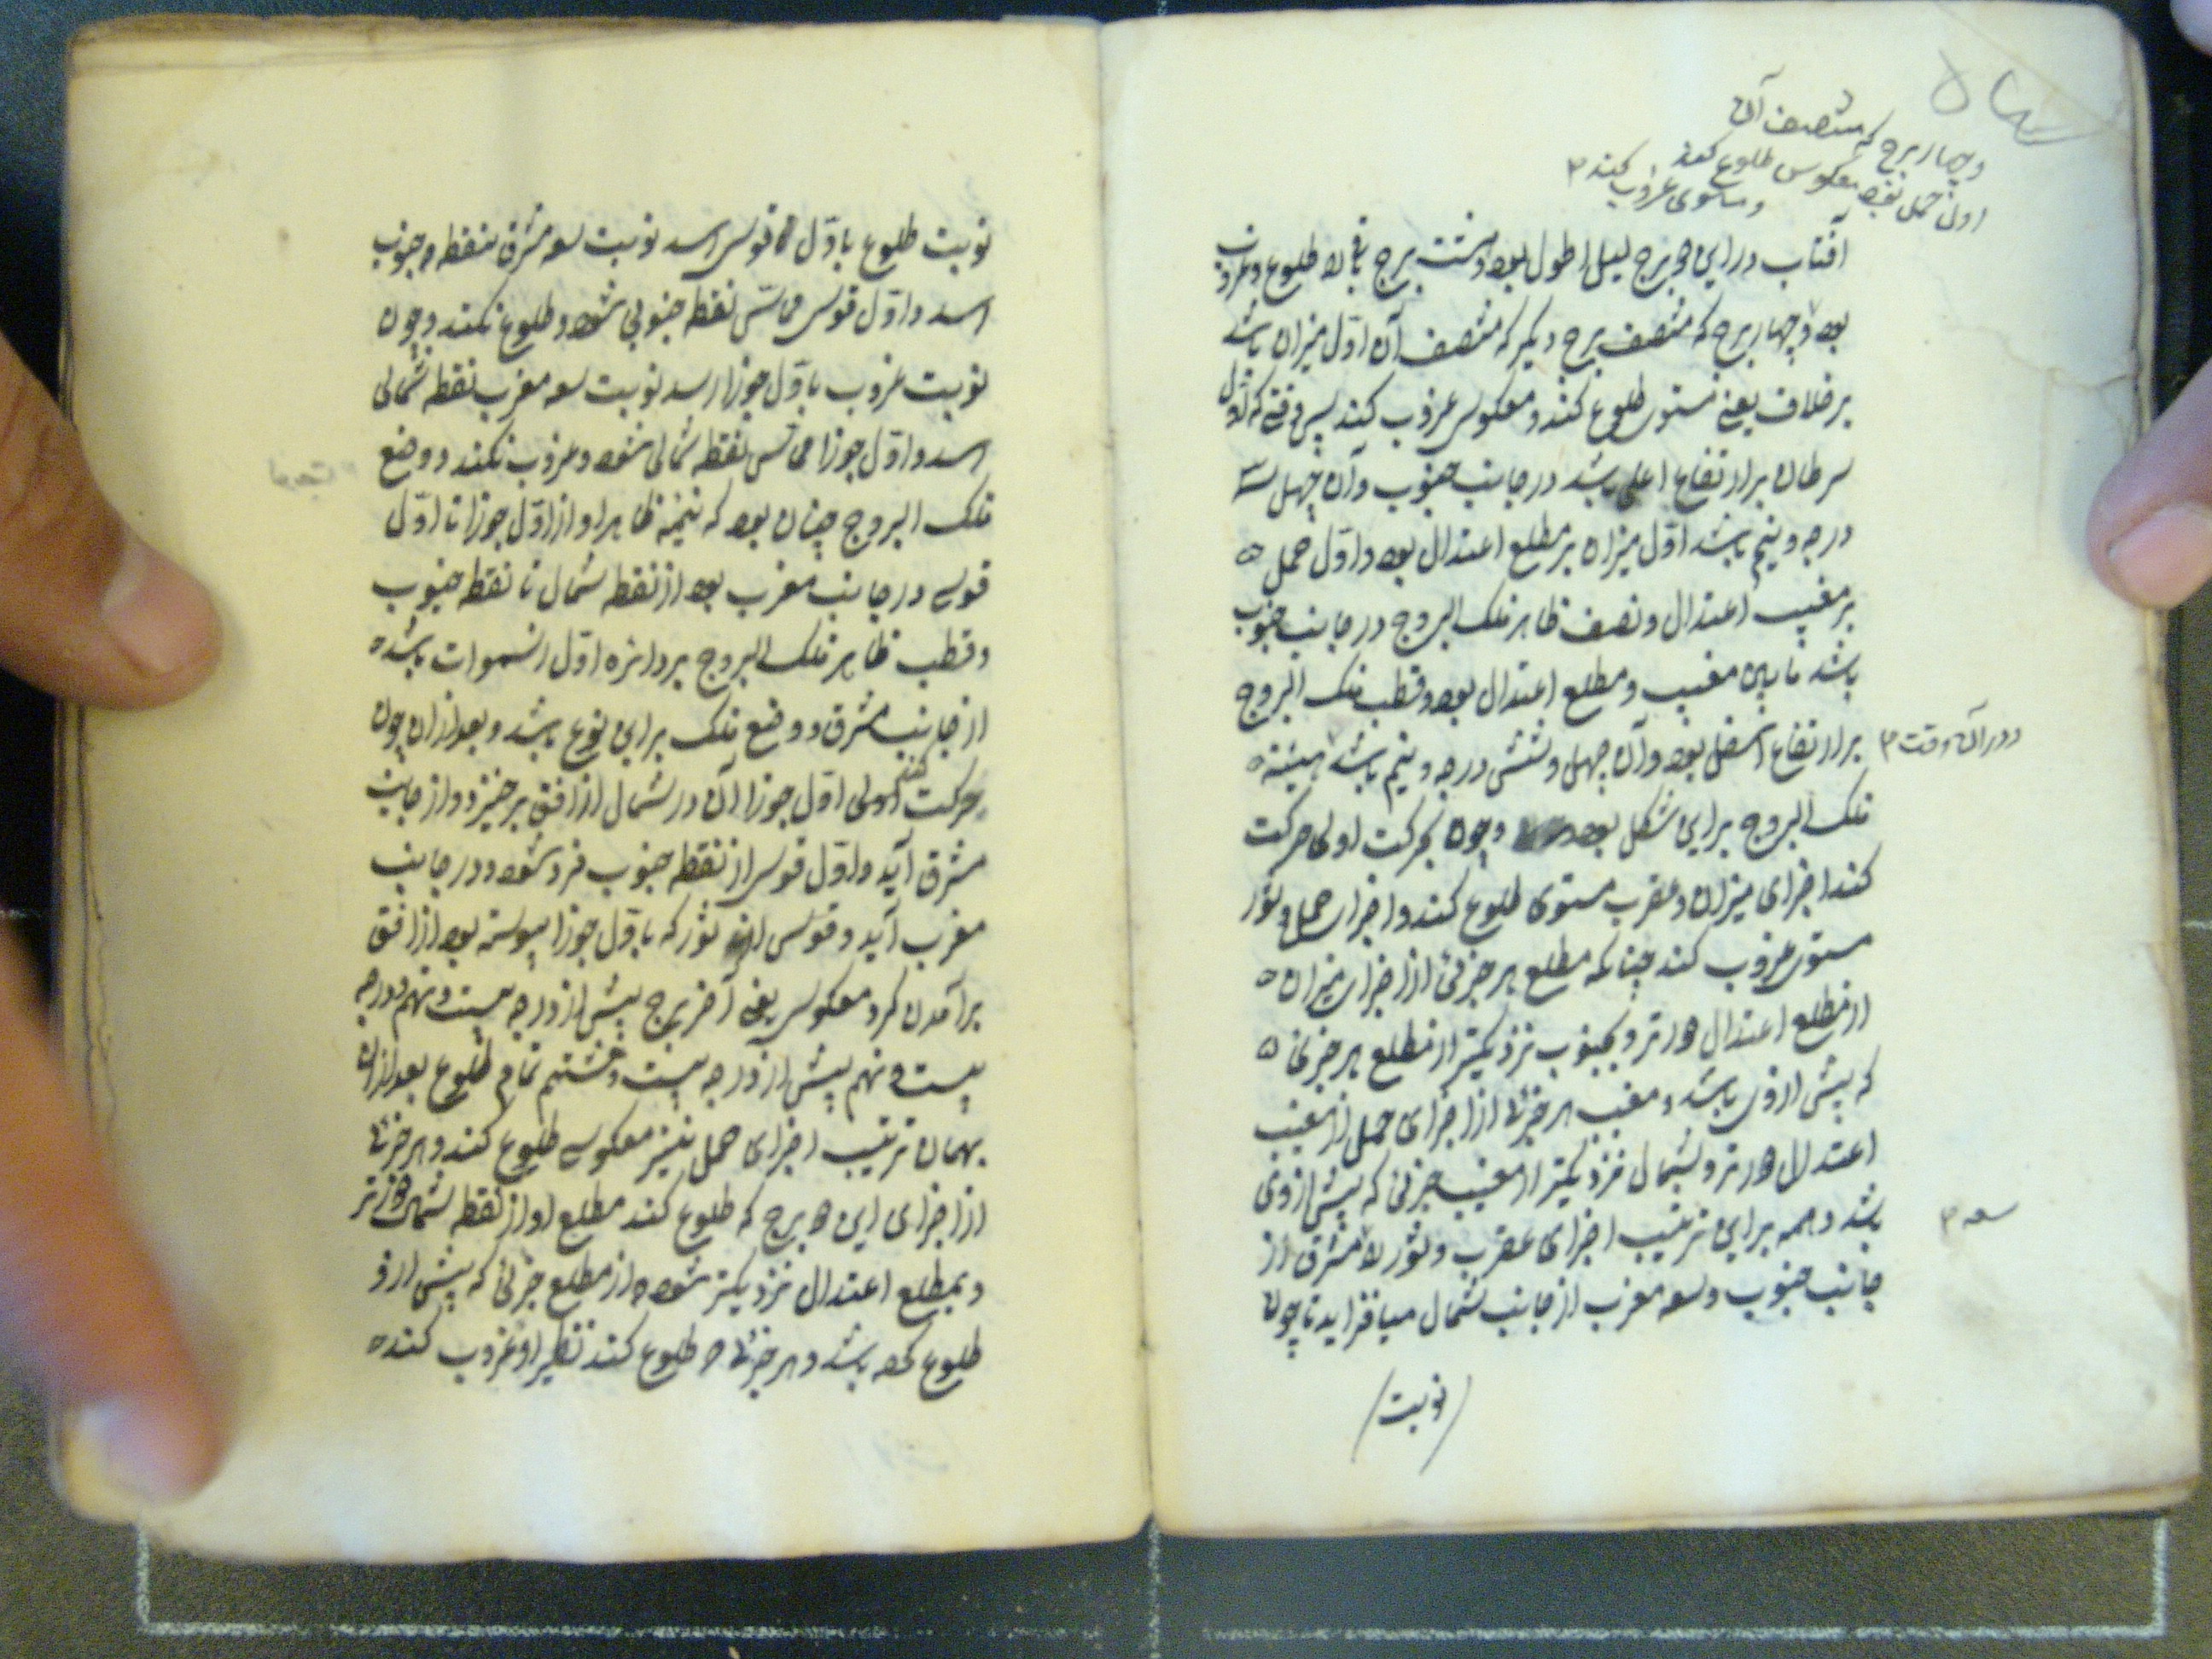 و چهار برج که منتصف آن
اول حمل بود معکوس طلوع کند
و مستوی غروب کند
آفتاب در این دو برج لیل اطول بود و هشت برج باقی را طلوع و غروب
بود و چهار برج که منتصف برج دیگر که منتصف آن اوّل میزان باشد
برخلاف یعنی مستوی طلوع کنند و معکوس غروب کنند پس وقتی که اول
سرطان بر ارتفاع اعلی باشد در جانب جنوب و آن چهل
درجه و نیم باشد اوّل میزان بر مطلع اعتدال بود و اوّل حمل
بر مغیب اعتدال و نصف ظاهر فلک البروج در جانب جنوب
باشد ما بین مغیب و مطلع اعتدال بود و قطب فلک البروج
بر ارتفاع اسفل بود و آن چهل و شش درجه و نیم باشد هیئة
و در آن وقت
فلک البروج بر این شکل بود و چون بحرکت اولی حرکت
کند اجزای میزان و عقرب مستوی طلوع کنند و اجزای حمل و ثور
مستوی غروب کند چنانکه مطلع هر جزئی از اجزای میزان
از مطلع اعتدال دورتر و بجنوب نزدیکتر از مطلع هر جزئی
که پیش از وی باشد و مغیب هر جزئی از اجزای حمل از مغیب
اعتدال دورتر و بشمال نزدیکتر از مغیب جزئی که پیش از وی
باشد و همه بر این ترتیب اجزای عقرب و ثور را مشرق از
سعه
جانب جنوب و سعه مغرب از جانب شمال میافزاید تا چون
(نوبت)
نوبت طلوع باوّل قوس رسد نوبت سعه مشرق بنقطه جنوب
رسد و اوّل قوس مماسّ نقطه جنوبی شود و طلوع نکند و چون
نوبت غروب باوّل جوزا رسد نوبت سعه مغرب نقطه شمالی
رسد و اوّل جوزا مماسّ نقطه شمالی شود و غروب نکند و وضع
فلک البروج چنان بود که نیمه ظاهر او از اوّل جوزا تا اوّل
قوس در جانب مغرب بود از نقطه شمال تا نقطه جنوب
و قطب ظاهر فلک البروج بر دائره اوّل از سموات باشد
از جانب مشرق و وضع فلک بر این نوع باشد و بعد از آن چون
بحرکت اولی اوّل جوزا آن در شمال از افق برخیزد و از جانب
مشرق آید و اوّل قوس از نقطه جنوب فرو شود و در جانب
مغرب آید و قوس از ثور که باوّل جوزا پیوسته بود از افق
برآمدن گیرد معکوس یعنی آخر برج پیش از درجه بیست و نهم و درجه
بیست و نهم پیش از درجه بیست و هشتم تمام طلوع بعد از آن
بهمان ترتیب اجزای حمل نیز معکوس طلوع کنند و هر جزئی
از اجزای این دو برج که طلوع کند مطلع او از نقطه شمال دورتر
و بمطلع اعتدال نزدیکتر شود از مطلع جزئی که پیش از او
طلوع کرده باشد و هر جزئی که طلوع کند نظیر او غروب کند